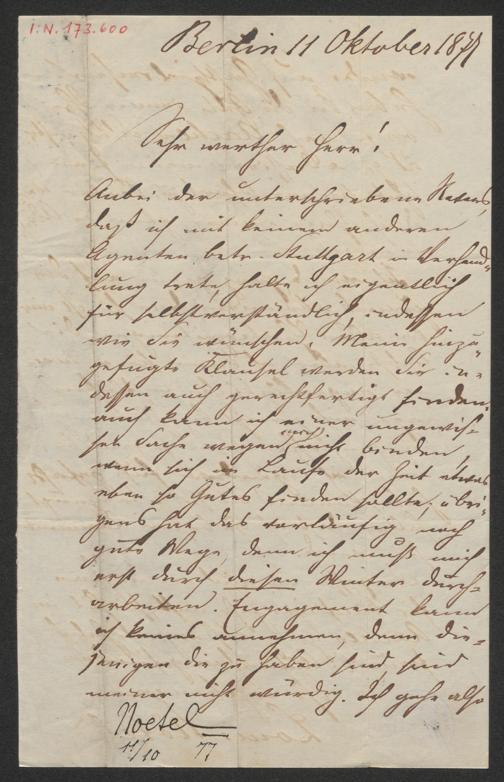 I.N. 173.600
Berlin 11 Oktober 1877
Sehr werther Herr!
Anbei der unterschriebene Revers,
daß ich mit keinem anderen
Agenten betr. Stuttgart in Verhand-
lung trete, halte ich eigentlich
für selbstverständlich, indessen
wie Sie wünschen. Meine hinzu-
gefügte Klausel werden Sie in-
dessen auch gerechtfertigt finden.
auch kann ich einer ungewis-
sen Sache wegen mich nicht binden,
wenn sich im Laufe der Zeit etwas
eben so Gutes finden sollte; übri-
gens hat das vorläufig noch
gute Wege, denn ich muß mich
erst durch diesen Winter durch-
arbeiten. Engagement kann
ich keines annehmen, denn die-
jenigen die zu haben sind, sind
meiner nicht würdig. Ich gehe also
Noetel
11/10 77